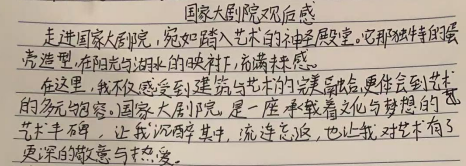 国家大剧院观后感
走进国家大剧院,宛如踏入艺术的神圣殿堂。它那独特的蛋
壳造型,在阳光与湖水的映衬下,充满美感。
在这里,我不仅感受到建筑与艺术的完美融合,更体会到艺术
的多元与包容。国家大剧院,是一座承载着文化与梦想的艺
艺术丰碑,让我沉醉其中,流连忘返,也让我对艺术有了
更深的敬意与热爱。